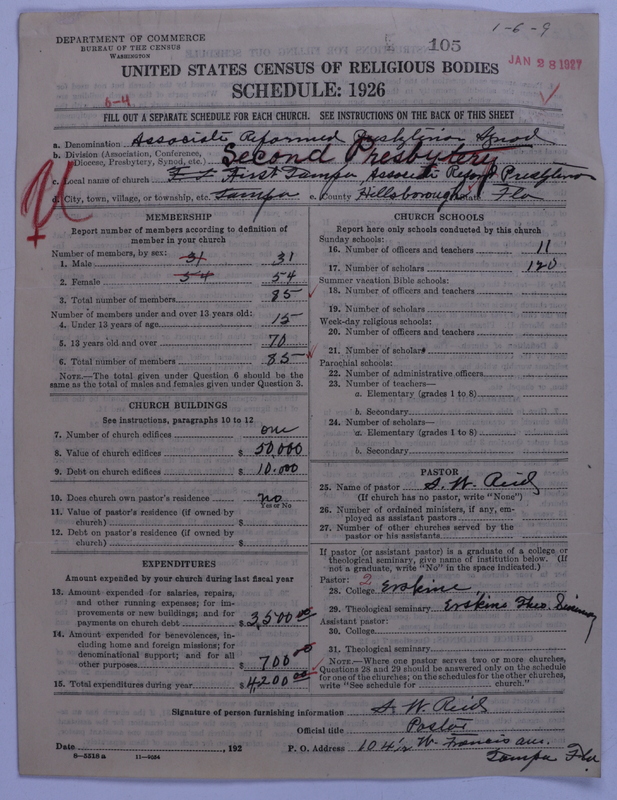 1-6-9
DEPARTMENT OF COMMERCE
BUREAU OF THE CENSUS
WASHINGTON
105
JAN 28 1927
UNITED STATES CENSUS OF RELIGIOUS BODIES
6-4
SCHEDULE: 1926
FILL OUT A SEPARATE SCHEDULE FOR EACH CHURCH. SEE INSTRUCTIONS ON THE BACK OF THIS SHEET
a. Denomination Associate Reformed Presbyterian Synod
b. Division (Association, Conference, Diocese, Presbytery, Synod, etc.) Second Presbytery
c. Local name of church First Tampa Associate Reford Presbyterian
d. City, town, village, or township, etc. Tampa e. County Hillsborough State Fla
MEMBERSHIP
Report number of members according to definition of
member in your church
Number of members, by sex: 31
1. Male 31
2. Female 54 54
3. Total number of members 85
Number of members under and over 13 years old:
4. Under 13 years of age 15
5. 13 years old and over 70
6. Total number of members 85
NOTE.—The total given under Question 6 should be
the same as the total of males and females given under Question 3.
CHURCH BUILDINGS
See instructions, paragraphs 10 to 12
7. Number of church edifices one
8. Value of church edifices $ 50,000
9. Debt on church edifices $ 10.000
10. Does church own pastor's residence no
Yes or No
11. Value of pastor's residence (if owned by
church) $
12. Debt on pastor's residence (if owned by
church) $
EXPENDITURES
Amount expended by your church during last fiscal year
13. Amount expended for salaries, repairs,
and other running expenses; for im-
provements or new buildings; and for
payments on church debt $ 3,500 00
14. Amount expended for benevolences, in-
cluding home and foreign missions; for
denominational support; and for all
other purposes 700 00
15. Total expenditures during year $ 4,200 00
CHURCH SCHOOLS
Report here only schools conducted by this church
Sunday schools:
16. Number of officers and teachers 11
17. Number of scholars 120
Summer vacation Bible schools:
18. Number of officers and teachers
19. Number of scholars
Week-day religious schools:
20. Number of officers and teachers
21. Number of scholars
Parochial schools:
22. Number of administrative officers
23. Number of teachers—
a. Elementary (grades 1 to 8)
b. Secondary
24. Number of scholars—
a. Elementary (grades 1 to 8)
b. Secondary
PASTOR
25. Name of pastor S. W. Reid
(If church has no pastor, write "None")
26. Number of ordained ministers, if any, em-
ployed as assistant pastors
27. Number of other churches served by the
pastor or his assistants
If pastor (or assistant pastor) is a graduate of a college or
theological seminary, give name of institution below. (If
not a graduate, write "No" in the space indicated.)
Pastor: 2
28. College Erskine
29. Theological seminary Erskine Theo. Seminary
Assistant pastor:
30. College
31. Theological seminary
NOTE.—Where one pastor serves two or more churches,
Questions 28 and 29 should be answered only on the schedule
for one of the churches; on the schedules for the other churches,
write "See schedule for church."
Signature of person furnishing information S. W. Reid
Official title Pastor
Date , 192 P. O. Address 104½ W. Francis ave.
Tampa Fla
8—5218 a 11—9054